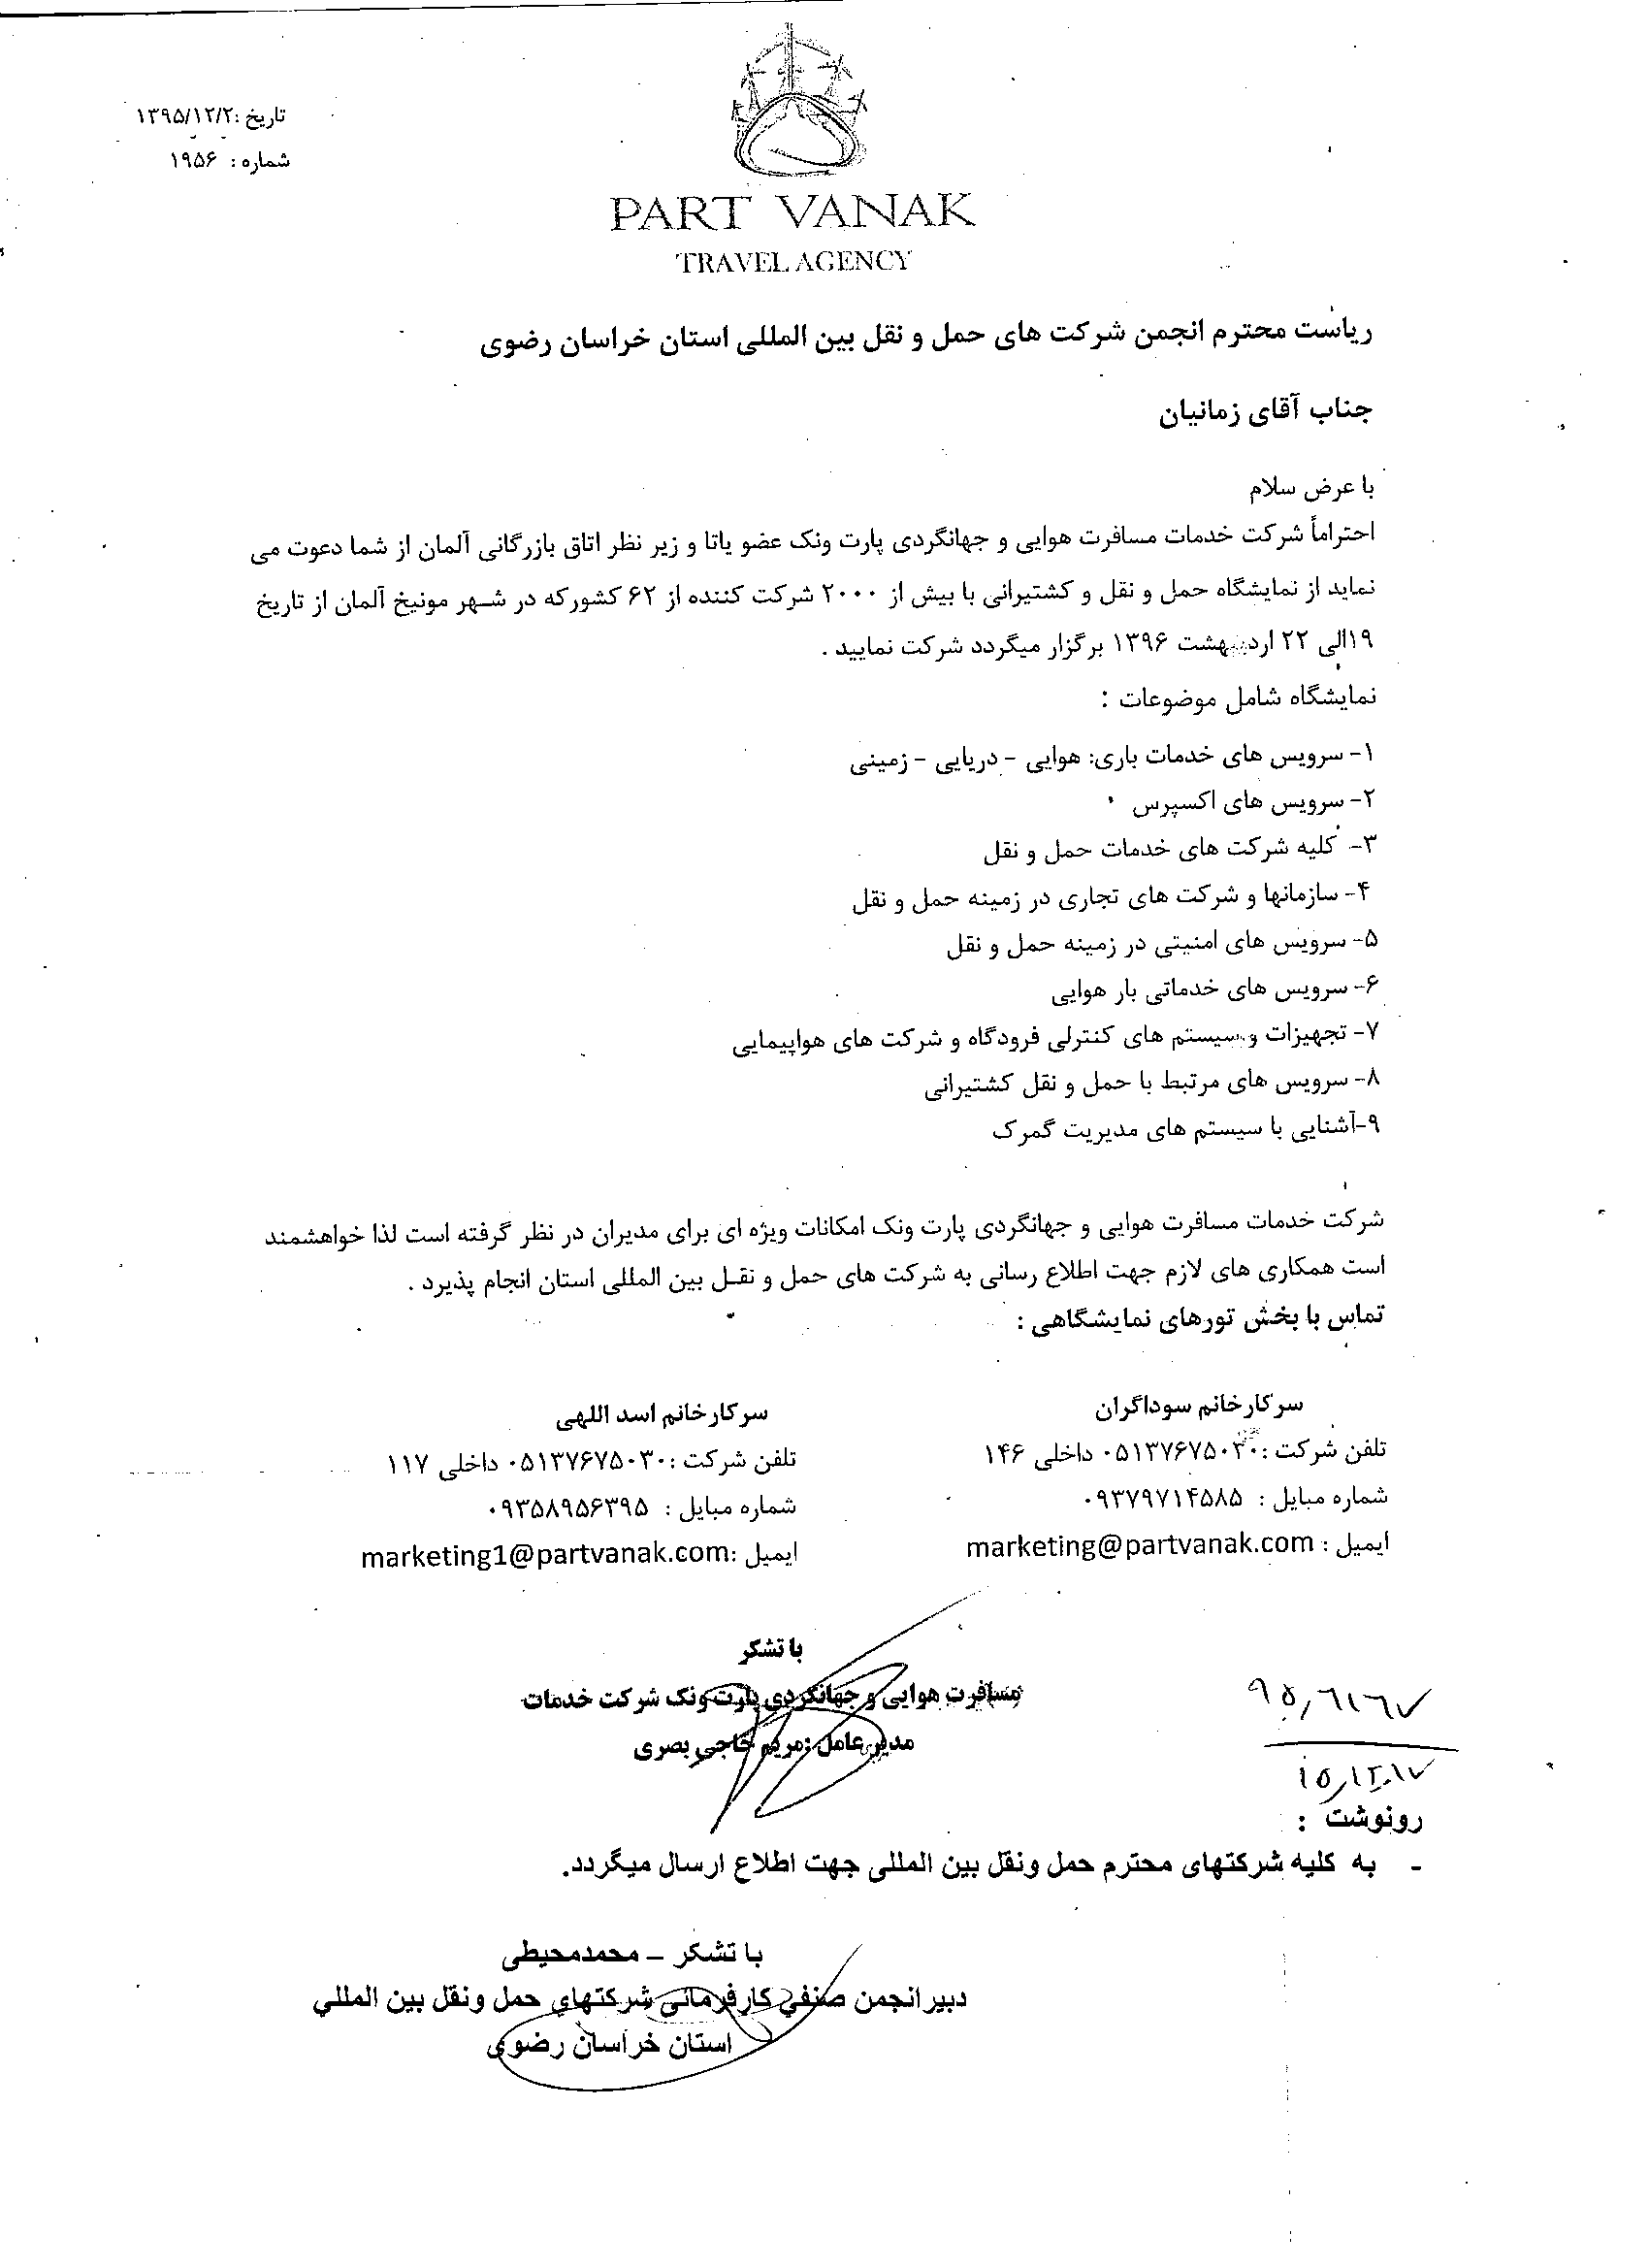 تاریخ :۱۳۹۵/۱۲/۲
شماره : ۱۹۵۶
PART VANAK
TRAVEL AGENCY
ریاست محترم انجمن شرکت های حمل و نقل بین المللی استان خراسان رضوی
جناب آقای زمانیان
با عرض سلام
احتراماً شرکت خدمات مسافرت هوایی و جهانگردی پارت ونک عضو یاتا و زیر نظر اتاق بازرگانی آلمان از شما دعوت می
نماید از نمایشگاه حمل و نقل و کشتیرانی با بیش از ۲۰۰۰ شرکت کننده از ۶۲ کشورکه در شهر مونیخ آلمان از تاریخ
۱۹الی ۲۲ اردیبهشت ۱۳۹۶ برگزار میگردد شرکت نمایید .
نمایشگاه شامل موضوعات :
۱- سرویس های خدمات باری: هوایی - دریایی - زمینی
۲- سرویس های اکسپرس
۳- کلیه شرکت های خدمات حمل و نقل
۴- سازمانها و شرکت های تجاری در زمینه حمل و نقل
۵- سرویس های امنیتی در زمینه حمل و نقل
۶- سرویس های خدماتی بار هوایی
۷- تجهیزات و سیستم های کنترلی فرودگاه و شرکت های هواپیمایی
۸- سرویس های مرتبط با حمل و نقل کشتیرانی
۹-آشنایی با سیستم های مدیریت گمرک
شرکت خدمات مسافرت هوایی و جهانگردی پارت ونک امکانات ویژه ای برای مدیران در نظر گرفته است لذا خواهشمند
است همکاری های لازم جهت اطلاع رسانی به شرکت های حمل و نقل بین المللی استان انجام پذیرد .
تماس با بخش تورهای نمایشگاهی :
سرکارخانم سوداگران
تلفن شرکت :۰۵۱۳۷۶۷۵۰۳۰ داخلی ۱۴۶
شماره مبایل : ۰۹۳۷۹۷۱۴۵۸۵
ایمیل : marketing@partvanak.com
سرکارخانم اسد اللهی
تلفن شرکت :۰۵۱۳۷۶۷۵۰۳۰ داخلی ۱۱۷
شماره مبایل : ۰۹۳۵۸۹۵۶۳۹۵
ایمیل :marketing1@partvanak.com
با تشکر
مسافرت هوایی و جهانگردی پارت ونک شرکت خدمات
مدیر عامل :مریم حاجی بصری
رونوشت :
- به کلیه شرکتهای محترم حمل ونقل بین المللی جهت اطلاع ارسال میگردد.
با تشکر – محمدمحیطی
دبیرانجمن صنفي کارفرمائی شرکتهاي حمل ونقل بین المللي
استان خراسان رضوی